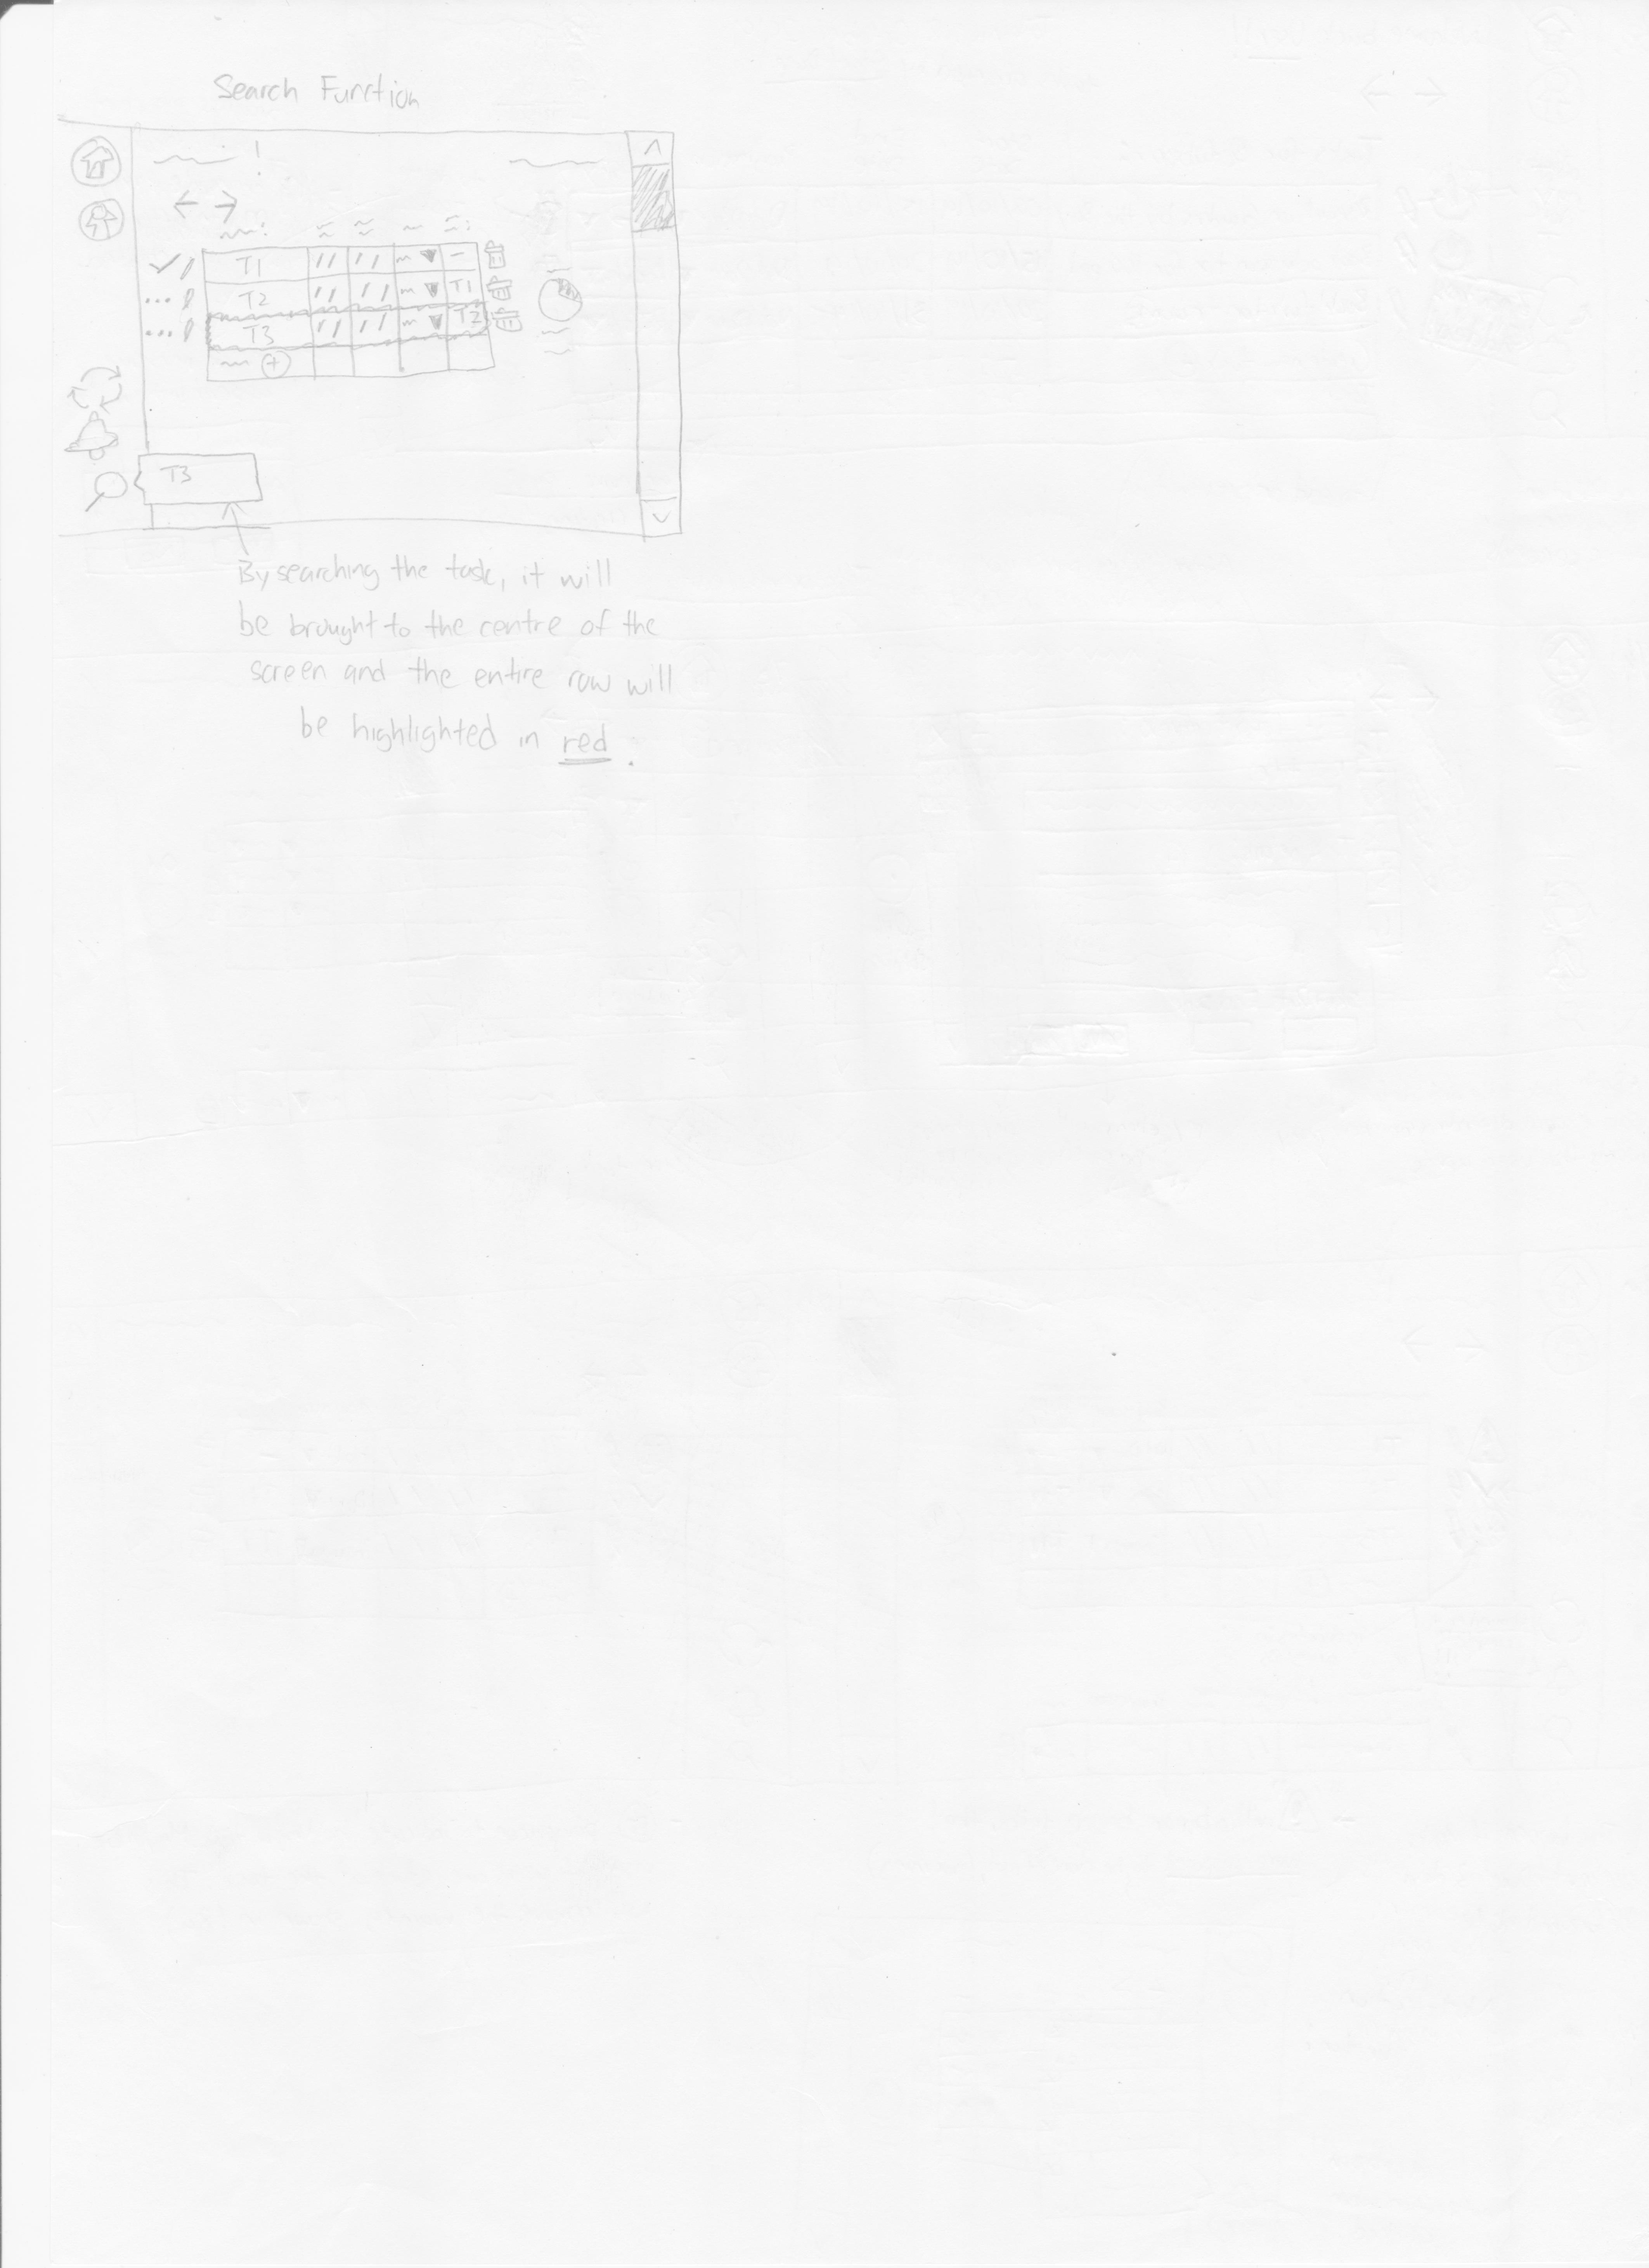 Search Function
T1 // // -
T2 // // T1
T3 // // T2
T3
By searching the task, it will
be brought to the centre of the
screen and the entire row will
be highlighted in red.